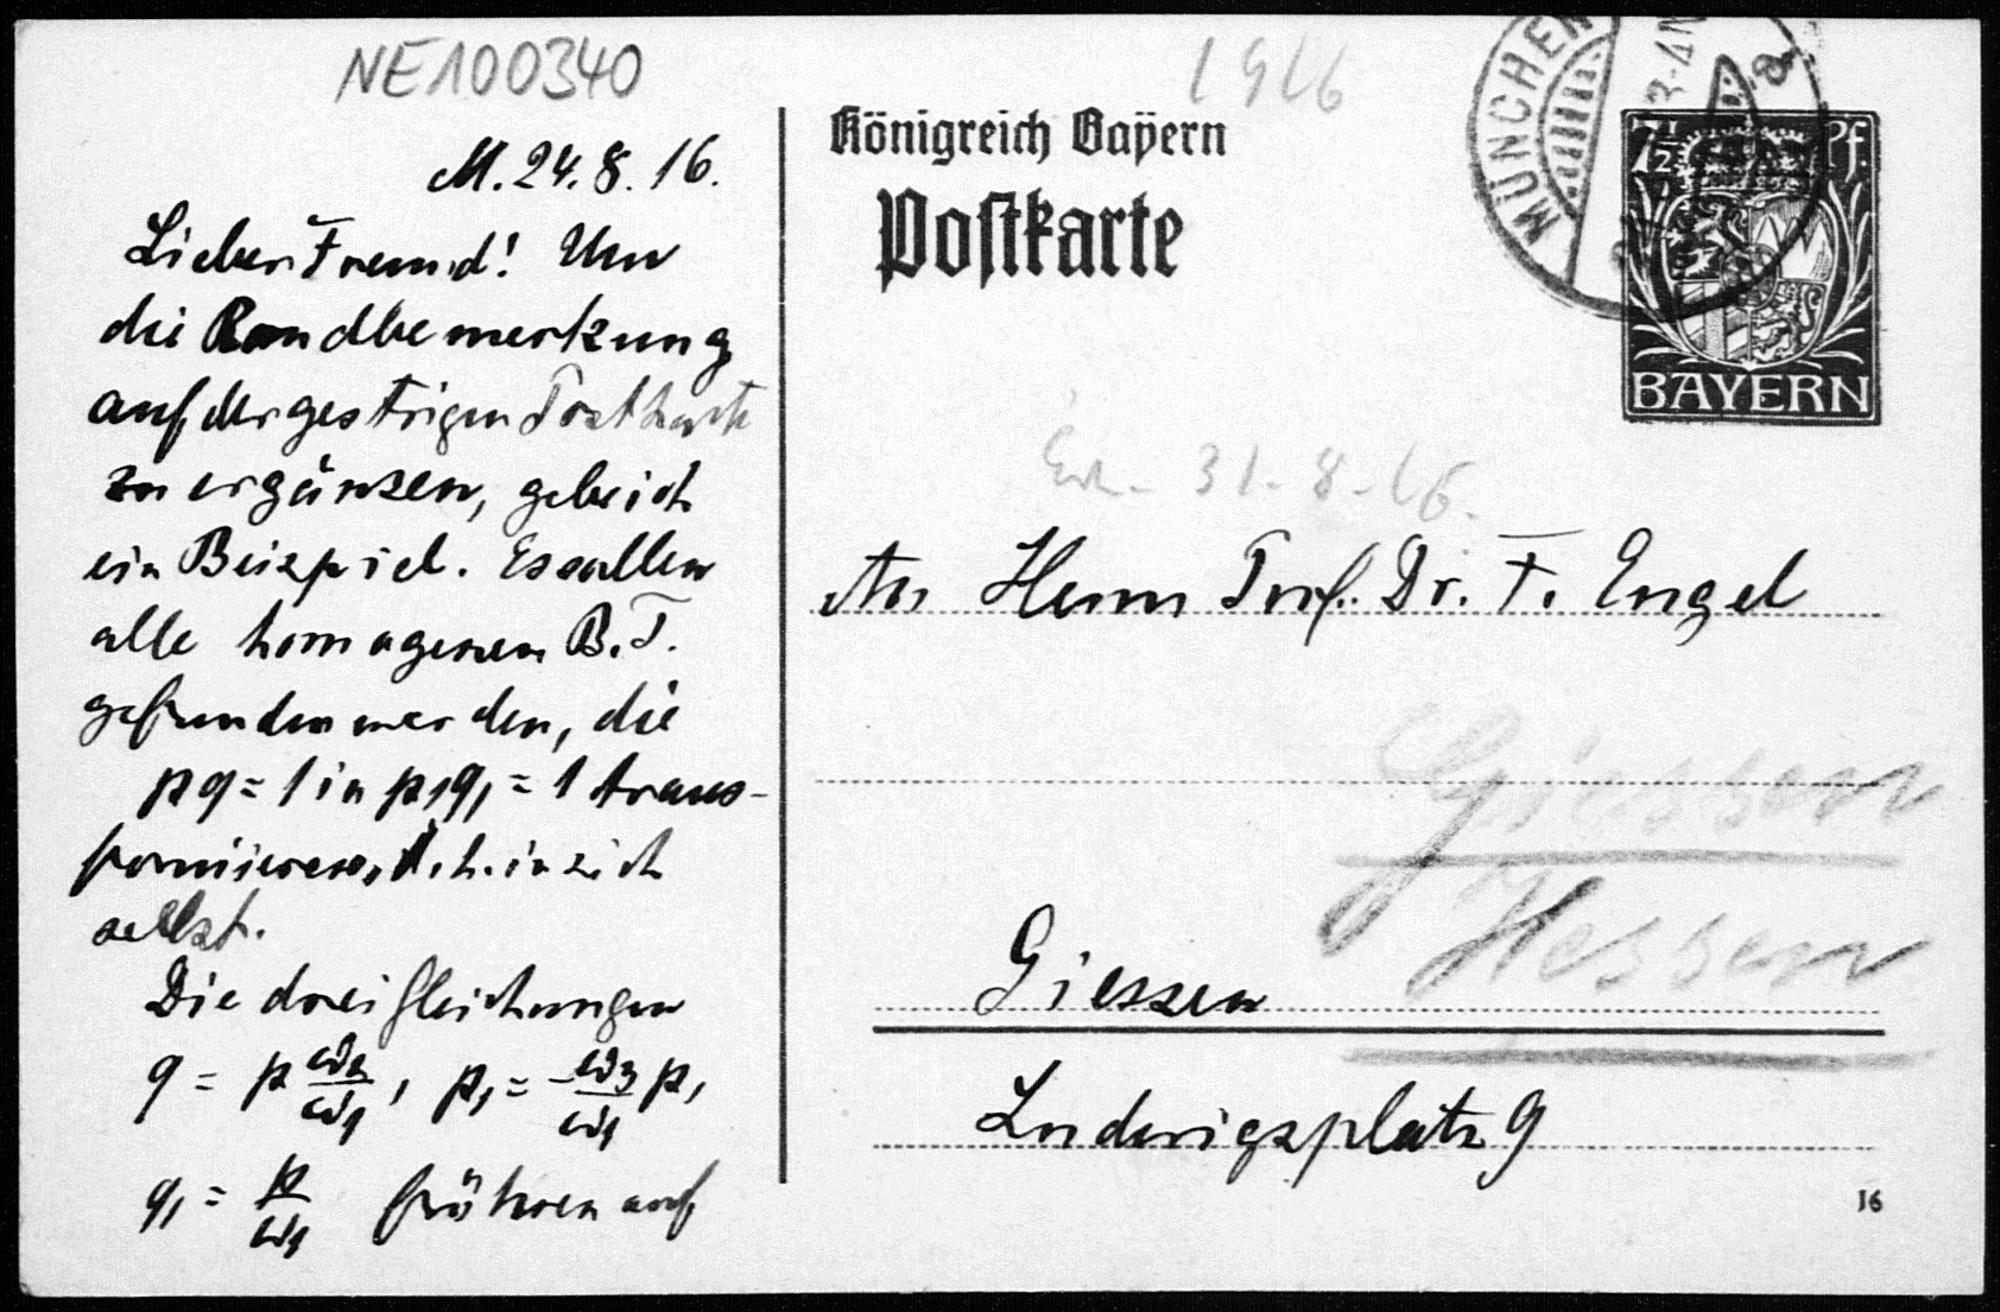 NE100340
M. 24. 8. 16.
Lieber Freund! Um
die Randbemerkung
auf der gestrigen Postkarte
zu ergänzen, gebe ich
ein Beispiel. Es sollen
alle homogenen B.T.
gefunden werden, die
pq = 1 in p₁q₁ = 1 trans-
formieren, d.h. in sich
selbst.
Die drei Gleichungen
q = p ω₂/ω₁, p₁ = -ω₃/ω₁ p,
q₁ = p/ω₁ führen auf
1916
Königreich Bayern
Postkarte
MÜNCHEN
7½ Pf.
BAYERN
31.8.16.
An Herrn Prof. Dr. F. Engel
Giessen
Hessen
Giessen
Ludwigsplatz 9
16